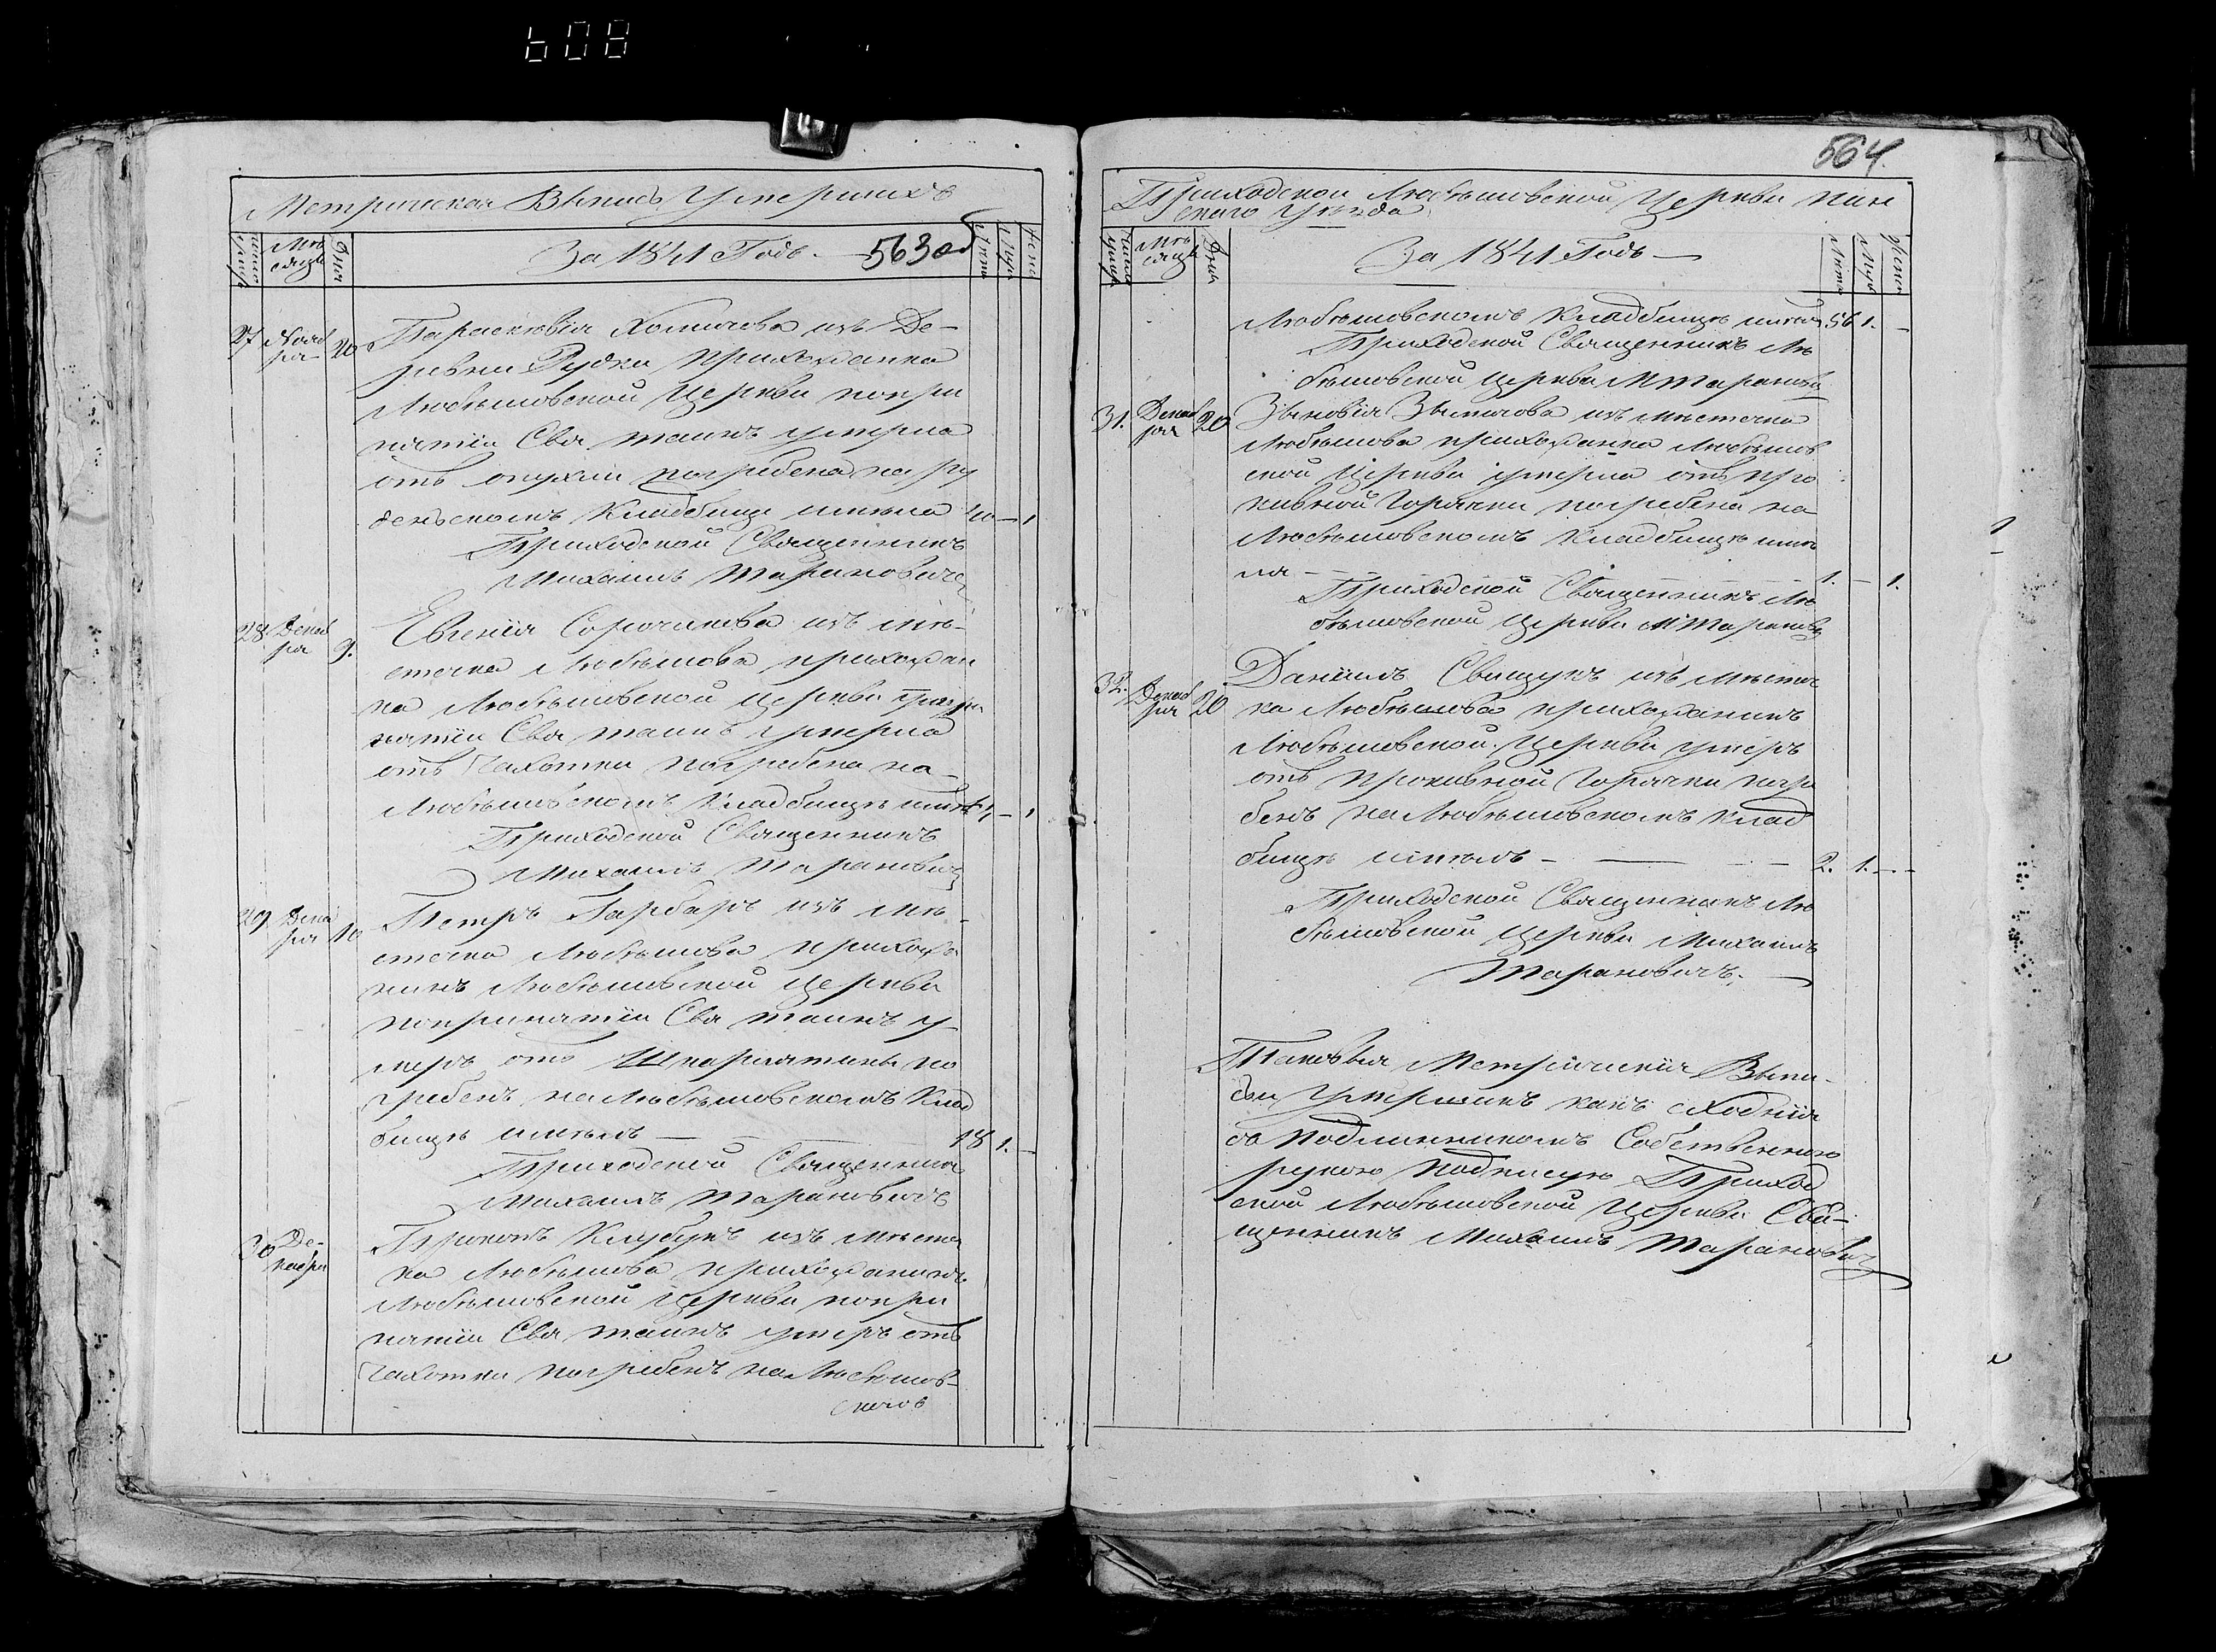 608
Метрическая Выпись Умершихъ
За 1841 Годъ. — 563 об
число умерш
Мѣсяцъ
Дня
Лѣта
Муж
Жена
27 Ноября 20 Параскевія Хомичова изъ Де-
ревни Рудки прихожанка
Любѣшовской Церкви попри
нятіи Свя таинъ умерла
отъ опухли погребена на Ру
денскомъ Кладбищѣ имѣла 40 — 1
Приходской Священникъ
Михаилъ Тарановичъ
28 Декабря 9. Евгенія Сорочикова изъ мѣ-
стечка Любѣшова прихожан
ка Любѣшовской Церкви
нятіи Свя таинъ умерла
отъ Чахотки погребена на
Любѣшовскомъ Кладбищѣ — 1
Приходской Священникъ
Михаилъ Тарановичъ
29 Декабря 10 Петръ Гарбаръ изъ мѣ-
стечка Любѣшова прихожа
нинъ Любѣшовской Церкви
попринятіи Свя таинъ у-
меръ отъ Шкарлятины по
гребенъ на Любѣшовскомъ Клад
бищѣ имѣлъ — 18 1. —
Приходской Священникъ
Михаилъ Тарановичъ
30 Де-
кабря Прокопъ Клубукъ изъ мѣстеч
ка Любѣшова прихожанинъ
Любѣшовской Церкви попри
нятіи Свя таинъ умеръ отъ
Чахотки погребенъ на Любѣшов-
скомъ
564.
Приходской Любѣшовской Церкви Пин
скаго уѣзда
За 1841 Годъ —
число умерш
Мѣсяцъ
Дня
Лѣта
Муж
Жена
Любѣшовскомъ Кладбищѣ имѣлъ 56 1. —
Приходской Священникъ Лю
бѣшовской Церкви М Тарановичъ
31. Декабря 20 Зѣновія изъ мѣстечка
Любѣшова прихожанка Любѣшов
ской Церкви умерла отъ
Горячки погребена на
Любѣшовскомъ Кладбищѣ имѣ
ла — 1. — 1.
Приходской Священникъ Лю
бѣшовской Церкви М Тарановичъ
32. Декабря 20 Даніилъ Свищукъ изъ мѣстеч
ка Любѣшова прихожанинъ
Любѣшовской Церкви умеръ
отъ Горячки погре
бенъ на Любѣшовскомъ Клад
бищѣ имѣлъ — 2. 1. —
Приходской Священникъ Лю
бѣшовской Церкви Михаилъ
Тарановичъ. —
Таковыя Метрическія Выпи-
си Умершихъ какъ сходнія
съ Подлинникомъ Собственною
рукою подписую Приход
ской Любѣшовской Церкви Свя-
щенникъ Михаилъ Тарановичъ